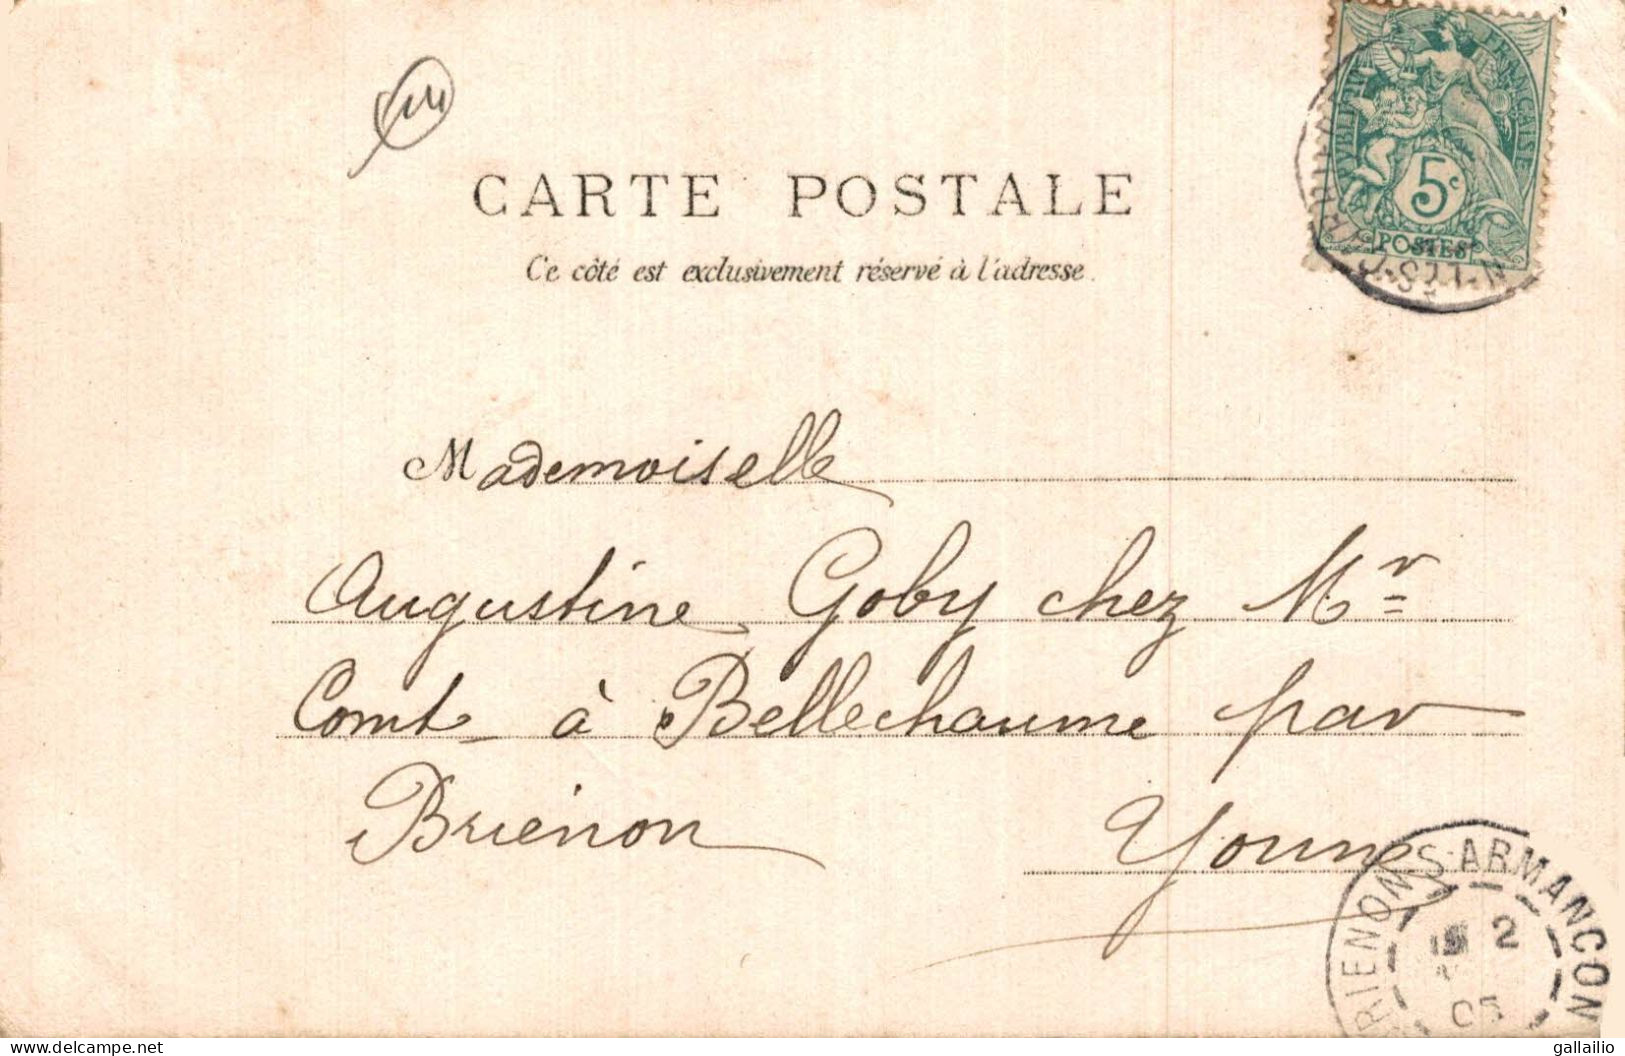 CARTE POSTALE
Ce côté est exclusivement réservé à l'adresse.
RÉPUBLIQUE FRANÇAISE
5c
POSTES
Mademoiselle
Augustine Goby chez Mr
Comt à Bellechaume par
Briénon Yonne
BRIENON S. ARMANCON
2
05
delcampe.net
gallailio